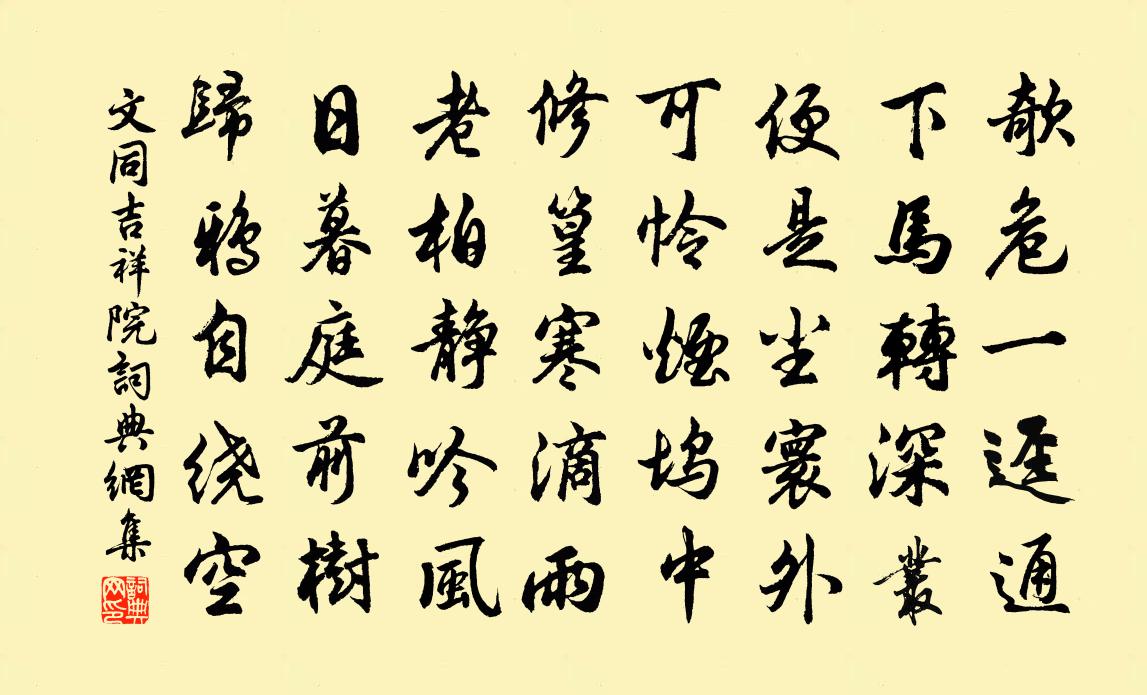 欹危一逕通
下馬轉深叢
便是尘寰外
可怜煙坞中
修篁寒滴雨
老柏静吟風
日暮庭前樹
歸鴉自绕空
文同吉祥院詞典網集
詞典网印